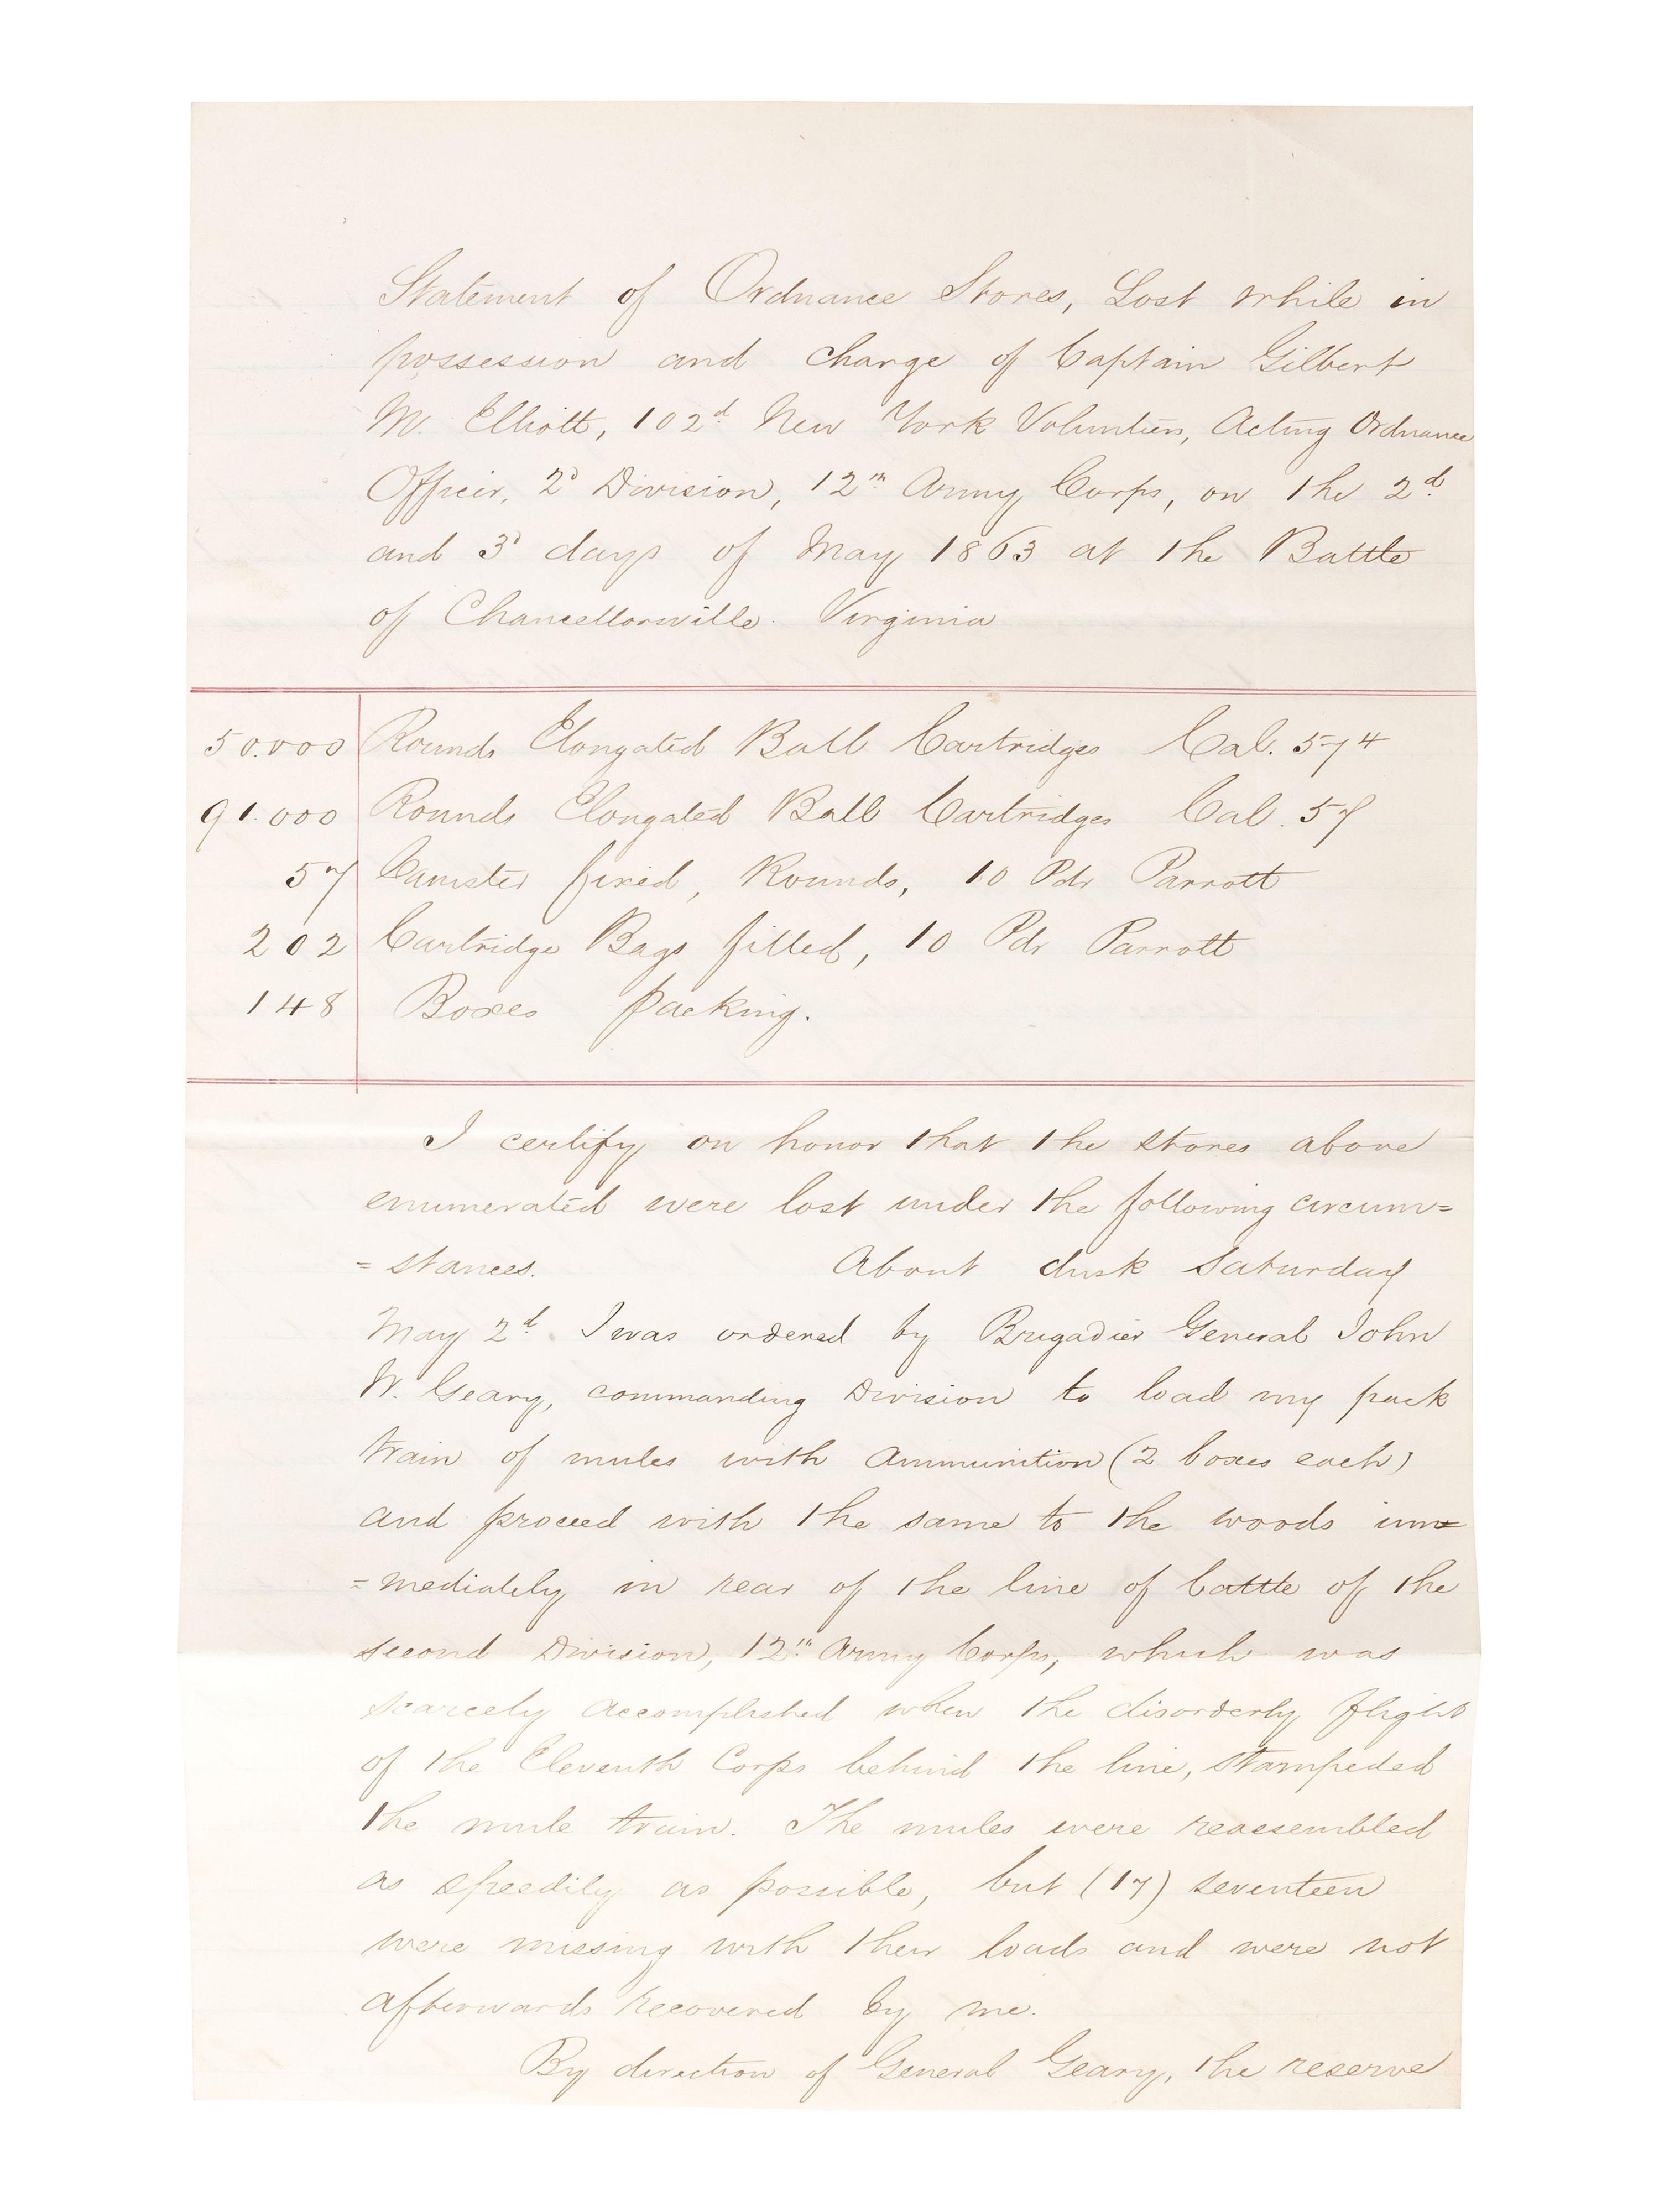 Statement of Ordnance Stores, Lost while in
possession and charge of Captain Gilbert
M. Elliott, 102d New York Volunteers, Acting Ordnance
Officer, 2d Division, 12th Army Corps, on the 2d
and 3d days of May 1863 at the Battle
of Chancellorsville. Virginia
50.000 Rounds Elongated Ball Cartridges Cal. 574
91.000 Rounds Elongated Ball Cartridges Cal. 57
57 Canister fixed, Rounds, 10 Pdr Parrott
202 Cartridge Bags filled, 10 Pdr Parrott
148 Boxes packing.
I certify on honor that the stores above
enumerated were lost under the following circum=
=stances. About dusk Saturday
May 2d. I was ordered by Brigadier General John
W. Geary, commanding Division to load my pack
train of mules with Ammunition (2 boxes each)
and proceed with the same to the woods im=
=mediately in rear of the line of battle of the
second Division, 12th Army Corps, which was
scarcely accomplished when the disorderly flight
of the Eleventh Corps behind the line, stampeded
the mule train. The mules were reassembled
as speedily as possible, but (17) seventeen
were missing with their loads and were not
afterwards recovered by me.
By direction of General Geary, the reserve